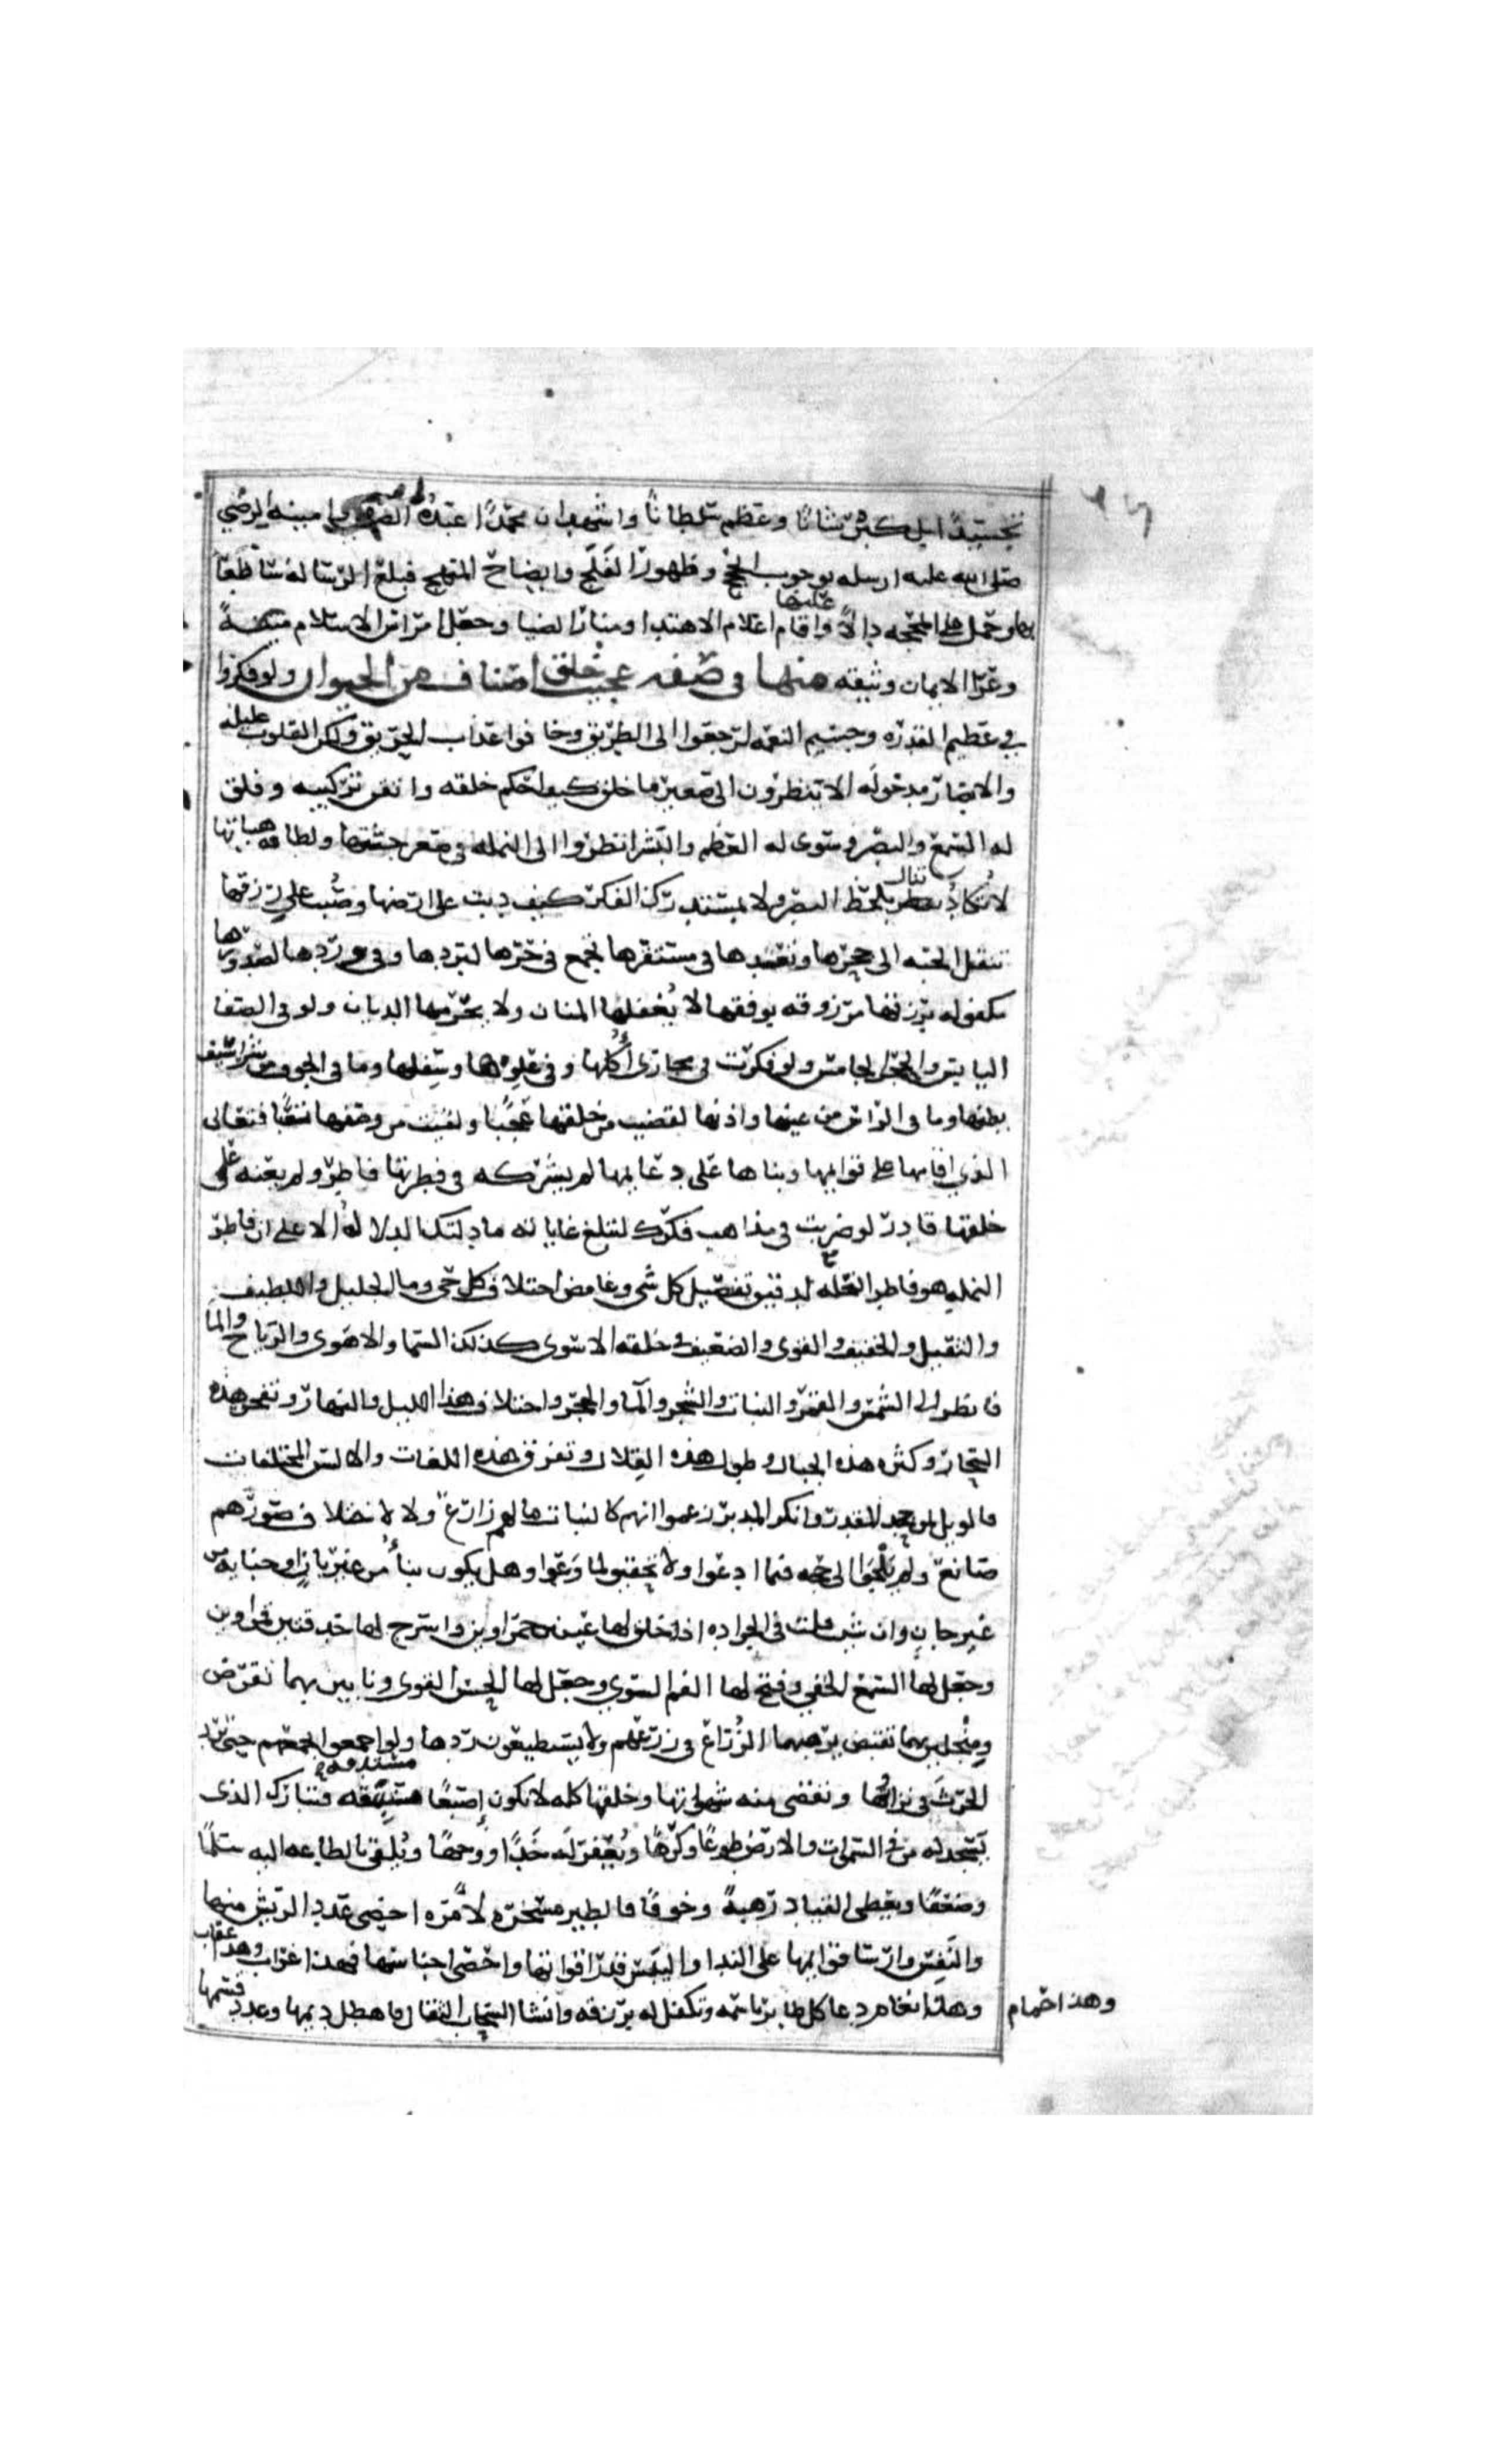 تجسيدًا بل كبر شانًا وعظم سلطانًا واشهد ان محمدًا عبده الصفي وامينه الرضي
صلى الله عليه ارسله بوجوب الحجج وظهور الفلج وايضاح المنهج فبلغ الرسالة صادعًا
بها وحمل على المحجه دالًا عليها واقام اعلام الاهتدا ومنار الضيا وجعل امراس الاسلام متينةً
وعرا الايمان وثيقه منها في صفه عجيب خلق اصناف من الحيوان ولو فكروا
في عظيم القدره وجسيم النعمه لرجعوا الى الطريق وخافوا عذاب الحريق ولكن القلوب عليله
والابصار مدخوله الا تنظرون الى صغير ما خلق كيف احكم خلقه واتقن تركيبه وفلق
له السمع والبصر وسوى له العظم والبشر انظروا الى النمله في صغر جثتها ولطافه هياتها
لا تكاد تنال بلحظ البصر ولا بمستدرك الفكر كيف دبت على ارضها وصُبت على رزقها
تنقل الحبه الى جحرها وتعدها في مستقرها تجمع في حرها لبردها وفي وردها لصدورها
مكفوله برزقها مرزوقه بوفقها لا يُغفلها المنان ولا يحرمها الديان ولو في الصفا
اليابس والحجر الجامس ولو فكرت في مجاري أُكلها وفي علوها وسفلها وما في الجوف من شراسيف
بطنها وما في الراس من عينها واذنها لقضيت من خلقها عجبًا ولقيت من وصفها تعبًا فتعالى
الذي اقامها على قوايمها وبناها على دعايمها لم يشركه في فطرتها فاطر ولم يعنه على
خلقها قادر لو ضربت في مذاهب فكرك لتبلغ غاياته ما دلتك الدلاله الا على ان فاطر
النمله هو فاطر النخله لدقيق تفصيل كل شي وغامض اختلاف كل حي وما الجليل واللطيف
والثقيل والخفيف والقوى والضعيف في خلقه الا سوى كذلك السما والاهوى والرياح والما
فانظر الى الشمس والقمر والنبات والشجر والما والحجر واختلاف هذا الليل والنهار وتفجر هذه
البحار وكثره هذه الجبال وطول هذه القلال وتفرق هذه اللغات والالسن المختلفات
فالويل لمن جحد المقدر وانكر المدبر زعموا انهم كالنبات ما لهم زارع ولا لاختلاف صورهم
صانع ولم يلجوا الى حجه فيما ادعوا ولا تحقيق لما وعوا وهل يكون بناءٌ من غير بانٍ او جنايه من
غير جانٍ وان شيت قلت في الجراده اذ خلق لها عينين حمراوين واسرج لها حدقتين قمراوين
وجعل لها السمع الخفي وفتح لها الفم السوي وجعل لها الحس القوى ونابين بهما تقرض
ومنجلين بهما تقبض يرهبها الزُرّاع في زرعهم ولا يستطيعون ردها ولو اجمعوا بجمعهم حتى ترد
الحرث في نزواتها وتقضى منه شهواتها وخلقها كله لا تكون إصبعًا مستدقه فتبارك الذى
يسجد له من في السموات والارض طوعًا وكرهًا ويُعفر له خدًا ووجهًا ويُلقي بالطاعه اليه سلمًا
وضعفًا ويعطى القياد رهبةً وخوفًا فالطير مسخره لامره احصى عدد الريش منها
والنفس وارسا قوايمها على الندا واليبس قدر اقواتها واحصى اجناسها فهذا غراب وهذا عقاب
وهذا حمام وهذا نعام دعا كل طاير باسمه وتكفل له برزقه وانشا السحاب الثقال فاهطل ديمها وعدد قسمها